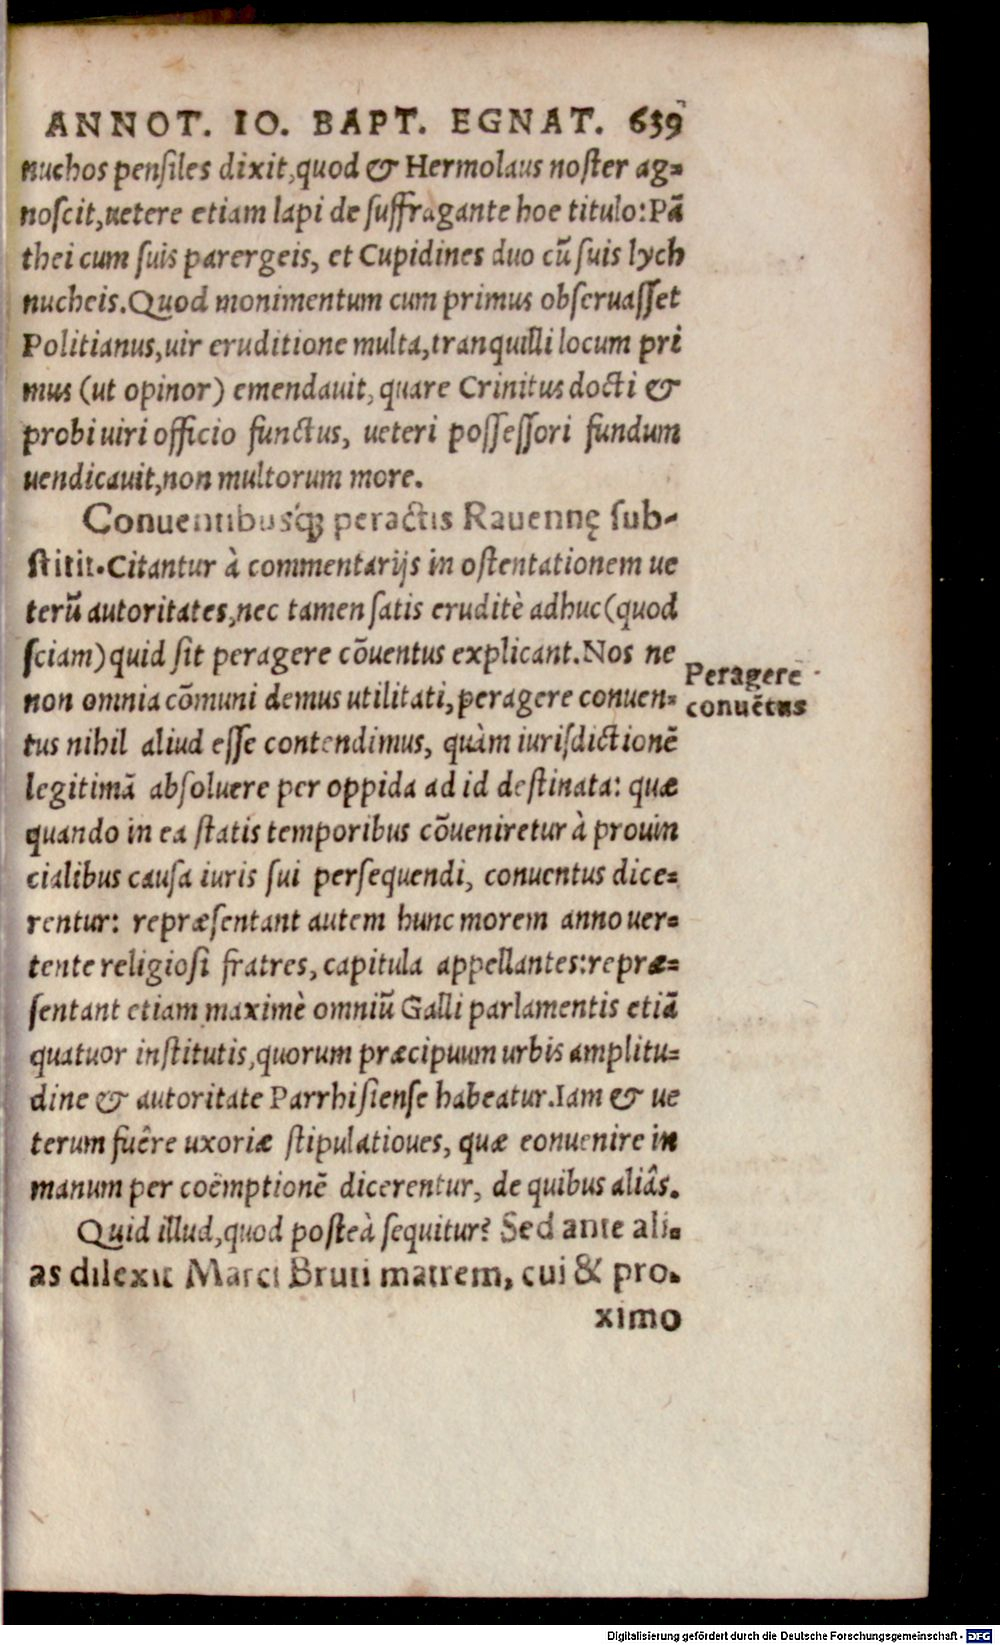 ANNOT. IO. BAPT. EGNAT. 639
nuchos pensiles dixit, quod & Hermolaus noster ag=
noscit, uetere etiam lapi de suffragante hoe titulo: Pā
thei cum suis parergeis, et Cupidines duo cū suis lych
nucheis. Quod monimentum cum primus obseruasset
Politianus, uir eruditione multa, tranquilli locum pri
mus (ut opinor) emendauit, quare Crinitus docti &
probi uiri officio functus, ueteri possessori fundum
uendicauit, non multorum more.
Conuentibusq́ꝫ peractis Rauennę sub-
stitit. Citantur à commentarijs in ostentationem ue
terū autoritates, nec tamen satis eruditè adhuc (quod
sciam) quid sit peragere cōuentus explicant. Nos ne
non omnia cōmuni demus utilitati, peragere conuen=
tus nihil aliud esse contendimus, quàm iurisdictionē
legitimā absoluere per oppida ad id destinata: quæ
quando in ea statis temporibus cōueniretur à prouin
cialibus causa iuris sui persequendi, conuentus dice=
rentur: repræsentant autem hunc morem anno uer=
tente religiosi fratres, capitula appellantes: repræ=
sentant etiam maximè omniū Galli parlamentis etiā
quatuor institutis, quorum præcipuum urbis amplitu=
dine & autoritate Parrhisiense habeatur. Iam & ue
terum fuêre uxoriæ stipulatioues, quæ eonuenire in
manum per coëmptionē dicerentur, de quibus aliâs.
Quid illud, quod posteà sequitur? Sed ante ali-
as dilexit Marci Bruti matrem, cui & pro-
ximo
Peragere
conuētus
Digitalisierung gefördert durch die Deutsche Forschungsgemeinschaft - DFG